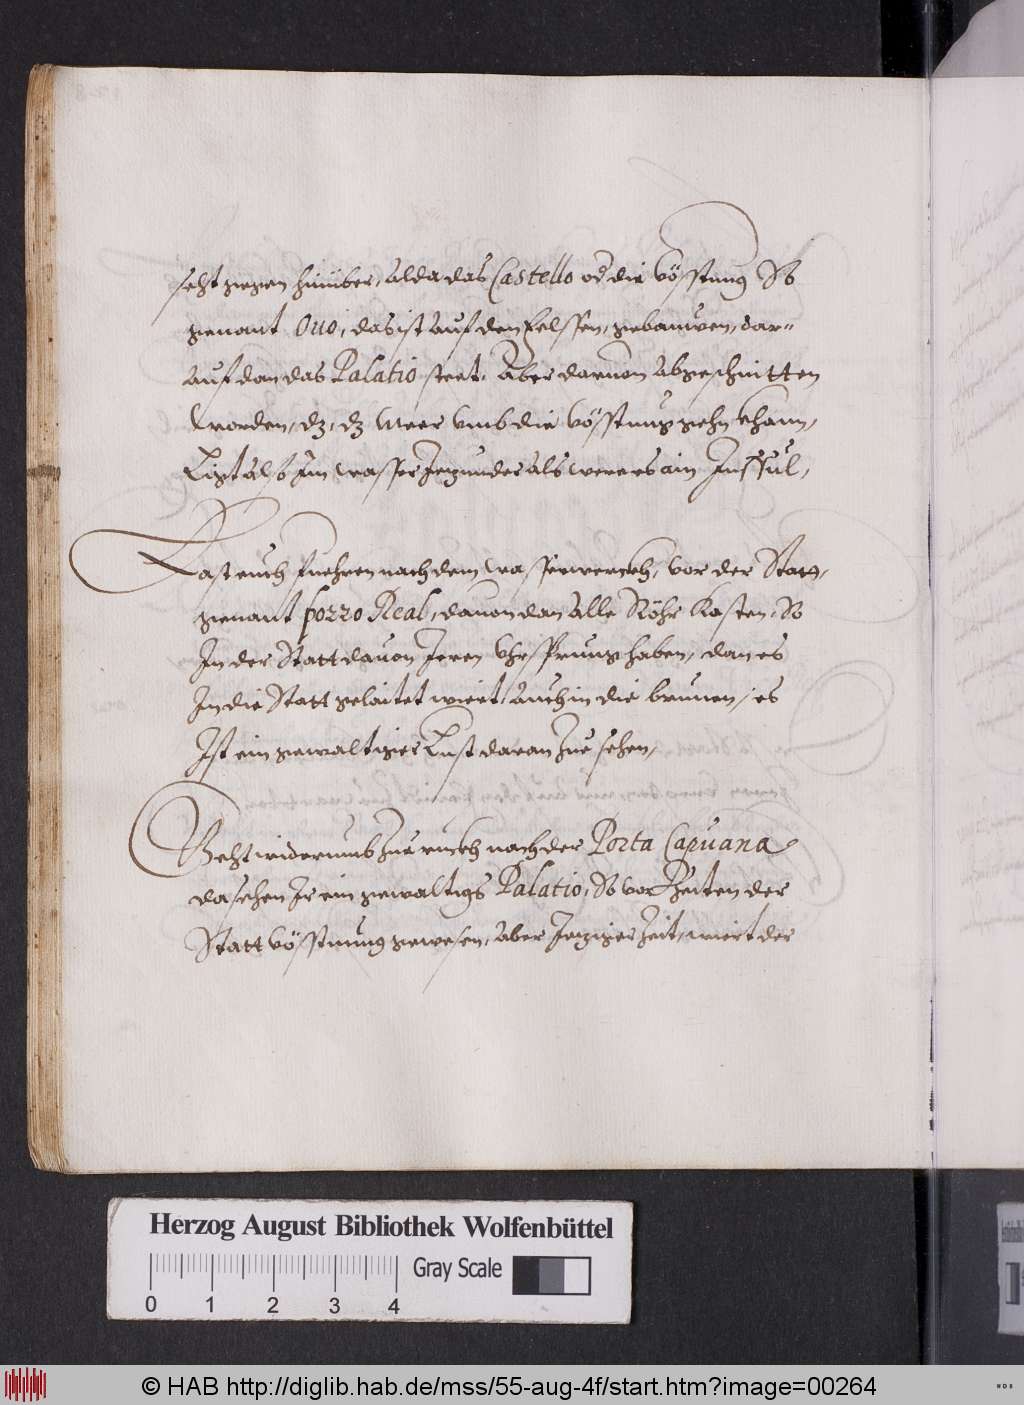 seht gegen hinüber, alda das Castello od die vösstung So
genant Ouo, das ist auf den felssen, gebauwen, dar=
auf dan das Palatio steet, Aber daruon abgeschnitten
worden, dz, dz Meer vmb die vösstung gehn khann,
Ligt also Im wasser Jezunder als were es ain Inssul,
Last euch fuehren nach dem wasserwerckh, vor der Statt,
genant pozzo Real, dauon dan alle Röhr Kasten, So
In der Statt dauon Iren Vhrsprung haben, dan es
In die Statt gelaitet wiert, Auch in die brunen, es
Ist ein gewaltiger Lust daran Zue sehen,
Geht widerumb Zue ruckh nach der Porta Capuana
da sehen Ir ein gewaltigs Palatio, So vor Zeiten der
Statt vösstung gewesen, aber Jeziger Zeit, wiert der
Herzog August Bibliothek Wolfenbüttel
Gray Scale
0 1 2 3 4
© HAB http://diglib.hab.de/mss/55-aug-4f/start.htm?image=00264